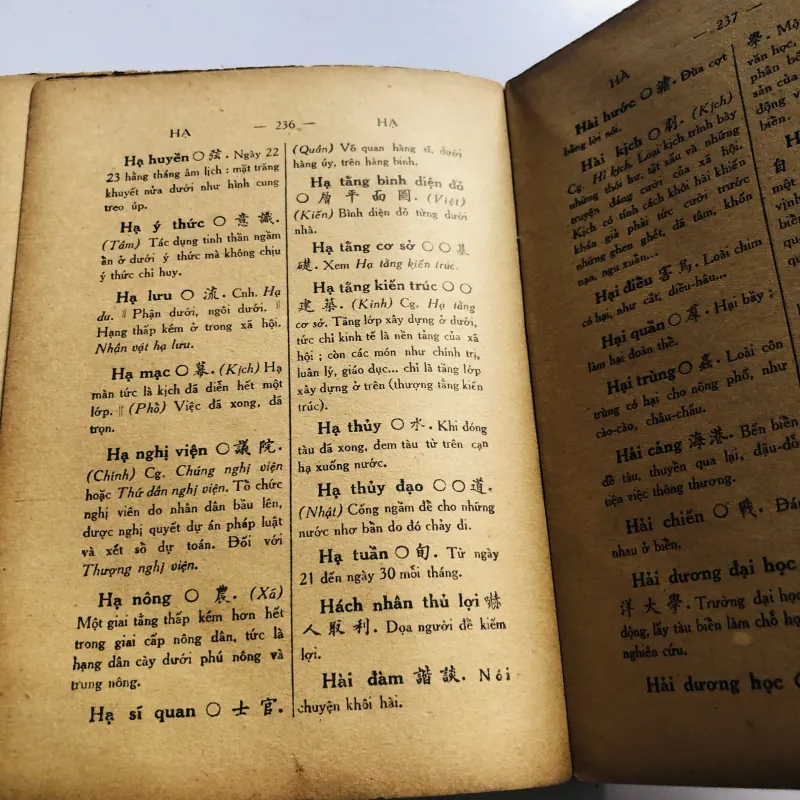 HẠ — 236 — HẠ
Hạ huyền 〇 弦. Ngày 22
23 hằng tháng âm lịch : mặt trăng
khuyết nửa dưới như hình cung
treo úp.
Hạ ý thức 〇 意 識.
(Tâm) Tác dụng tinh thần ngầm
ẩn ở dưới ý thức mà không chịu
ý thức chỉ huy.
Hạ lưu 〇 流. Cnh. Hạ
du. || Phận dưới, ngôi dưới. ||
Hạng thấp kém ở trong xã hội.
Nhân vật hạ lưu.
Hạ mạc 〇 幕. (Kịch) Hạ
màn tức là kịch đã diễn hết một
lớp. || (Phổ) Việc đã xong, đã
trọn.
Hạ nghị viện 〇 議 院.
(Chính) Cg. Chúng nghị viện
hoặc Thứ dân nghị viện. Tổ chức
nghị viên do nhân dân bầu lên,
được nghị quyết dự án pháp luật
và xét sổ dự toán. Đối với
Thượng nghị viện.
Hạ nông 〇 農. (Xã)
Một giai tầng thấp kém hơn hết
trong giai cấp nông dân, tức là
hạng dân cày dưới phú nông và
trung nông.
Hạ sĩ quan 〇 士 官.
(Quân) Võ quan hàng sĩ, dưới
hàng úy, trên hàng binh.
Hạ tầng bình diện đồ
〇 層 平 面 圖. (Việt)
(Kiến) Bình diện đồ từng dưới
nhà.
Hạ tầng cơ sở 〇 〇 基
礎. Xem Hạ tầng kiến trúc.
Hạ tầng kiến trúc 〇 〇
建 築. (Kinh) Cg. Hạ tầng
cơ sở. Tầng lớp xây dựng ở dưới,
tức chỉ kinh tế là nền tảng của xã
hội ; còn các món như chính trị,
luân lý, giáo dục... chỉ là tầng lớp
xây dựng ở trên (thượng tầng kiến
trúc).
Hạ thủy 〇 水. Khi đóng
tàu đã xong, đem tàu từ trên cạn
hạ xuống nước.
Hạ thủy đạo 〇 〇 道.
(Nhật) Cống ngầm để cho những
nước nhơ bẩn do đó chảy đi.
Hạ tuần 〇 旬. Từ ngày
21 đến ngày 30 mỗi tháng.
Hách nhân thủ lợi 嚇
人 取 利. Dọa người để kiếm
lợi.
Hài đàm 諧 談. Nói
chuyện khôi hài.
HÀ — 237 —
Hài hước 〇 謔. Đùa cợt
bằng lời nói.
Hài kịch 〇 劇. (Kịch)
Cg. Hí kịch. Loại kịch trình bày
những thói hư, tật xấu và những
truyện đáng cười của xã hội.
Kịch có tính cách khôi hài khiến
khán giả phải tức cười trước
những ghen ghét, dã tâm, khốn
nạn, ngu xuẩn...
Hại điểu 害 鳥. Loài chim
có hại, như cắt, diều-hâu...
Hại quần 〇 羣. Hại bầy ;
làm hại đoàn thể.
Hại trùng 〇 蟲. Loài côn
trùng có hại cho nông phố, như
cào-cào, châu-chấu.
Hải cảng 海 港. Bến biển
để tàu, thuyền qua lại, đậu-đỗ
tiện việc thông thương.
Hải chiến 〇 戰. Đán
nhau ở biển.
Hải dương đại học
洋 大 學. Trường đại học
động, lấy tàu biển làm chỗ học
nghiên cứu.
Hải dương học 〇
學. Mộ
văn học,
phân bố
sản của
động v
biển.
H
自
một
vịnh